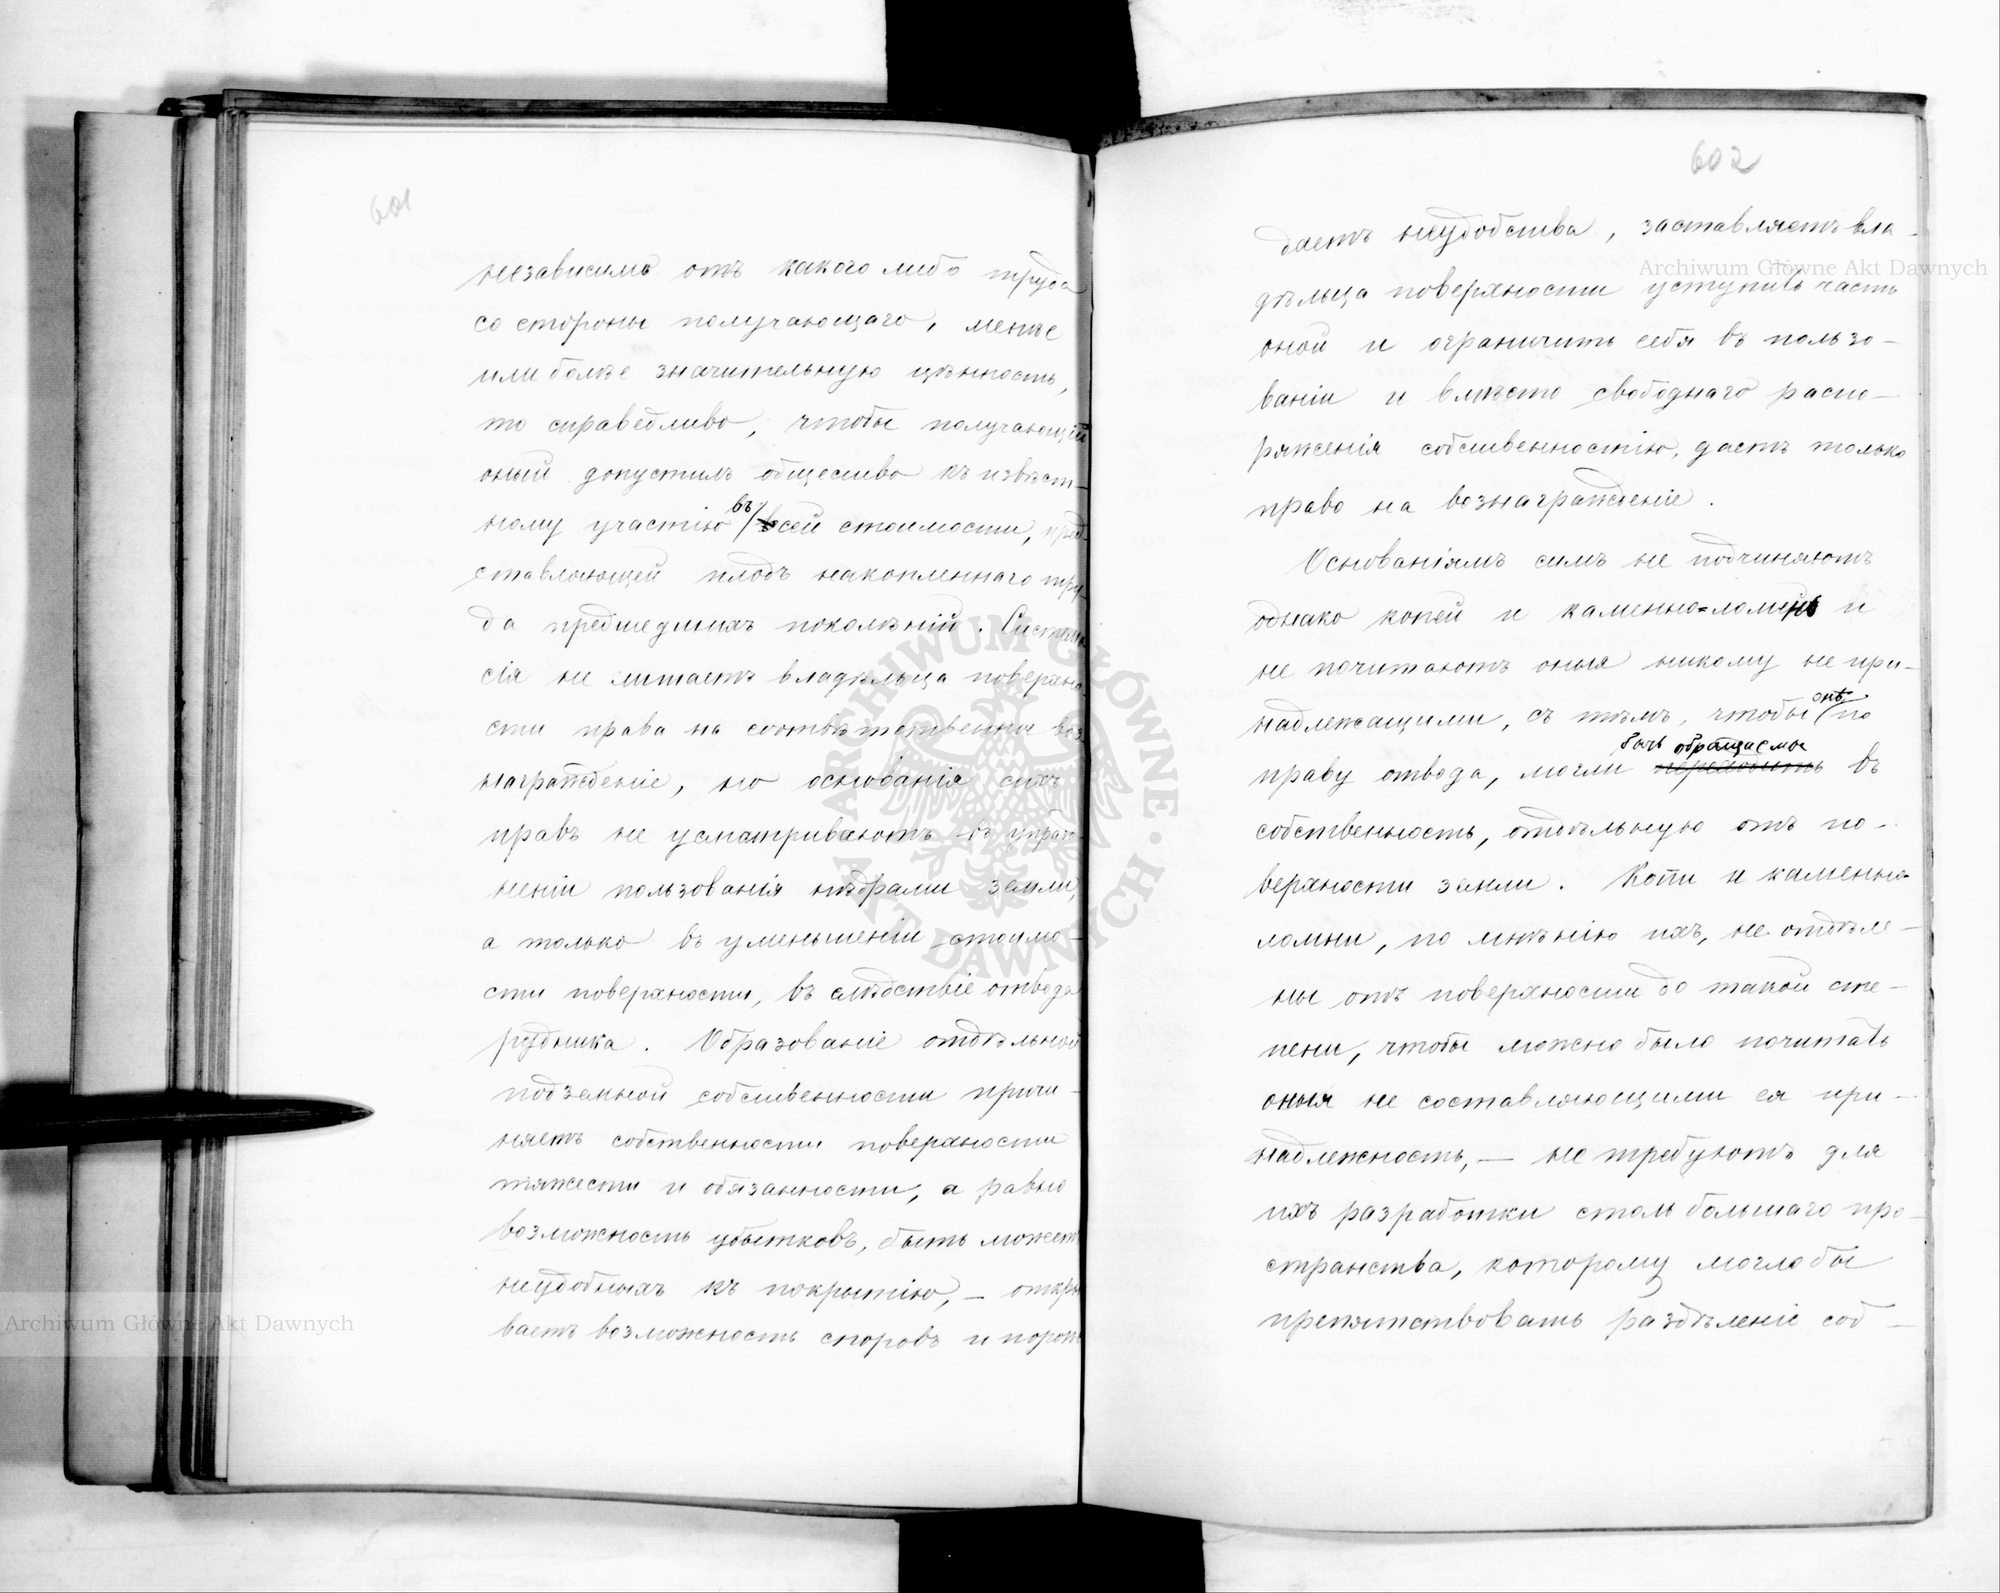 601
независимо отъ какого либо труда
со стороны получающаго, менѣе
или болѣе значительную цѣнность,
то справедливо, чтобы получающій
оный допустилъ общество къ извѣст-
ному участію въ всей стоимости, пред-
ставляющей плодъ накопленнаго тру-
да предшедшихъ поколѣній. Система
сія не лишаетъ владѣльца поверхно-
сти права на соотвѣтственное воз
награжденіе, но основанія сихъ
правъ не усматриваютъ въ
неніи пользованія нѣдрами земли,
а только въ уменьшеніи стоимо-
сти поверхности, въ слѣдствіе отвода
рудника. Образованіе отдѣльной
подземной собственности причи-
няетъ собственности поверхности
тяжести и обязанности, а равно
возможность убытковъ, быть можетъ
неудобныхъ къ покрытію, — откры
ваетъ возможность споровъ и порож
602
даетъ неудобства, заставляетъ вла-
дѣльца поверхности уступить часть
оной и ограничить себя въ пользо-
ваніи и вмѣсто свободнаго распо-
ряженія собственностію, дастъ только
право на вознагражденіе.
Основаніямъ симъ не подчиняютъ
однако копей и каменно=ломень и
не почитаютъ оныя никому не при-
надлежащими, съ тѣмъ, чтобы онѣ по
праву отвода, могли быть обращаемы переходить въ
собственность, отдѣльную отъ по-
верхности земли. Копи и каменно-
ломни, по мнѣнію ихъ, не отдѣле-
ны отъ поверхности до такой сте-
пени, чтобы можно было почитать
оныя не составляющими ея при-
надлежность, — не требуютъ для
ихъ разработки столь большаго про-
странства, которому могло бы
препятствовать раздѣленіе соб-
Archiwum Główne Akt Dawnych
Archiwum Główne Akt Dawnych
ARCHIWUM GŁÓWNE AKT DAWNYCH